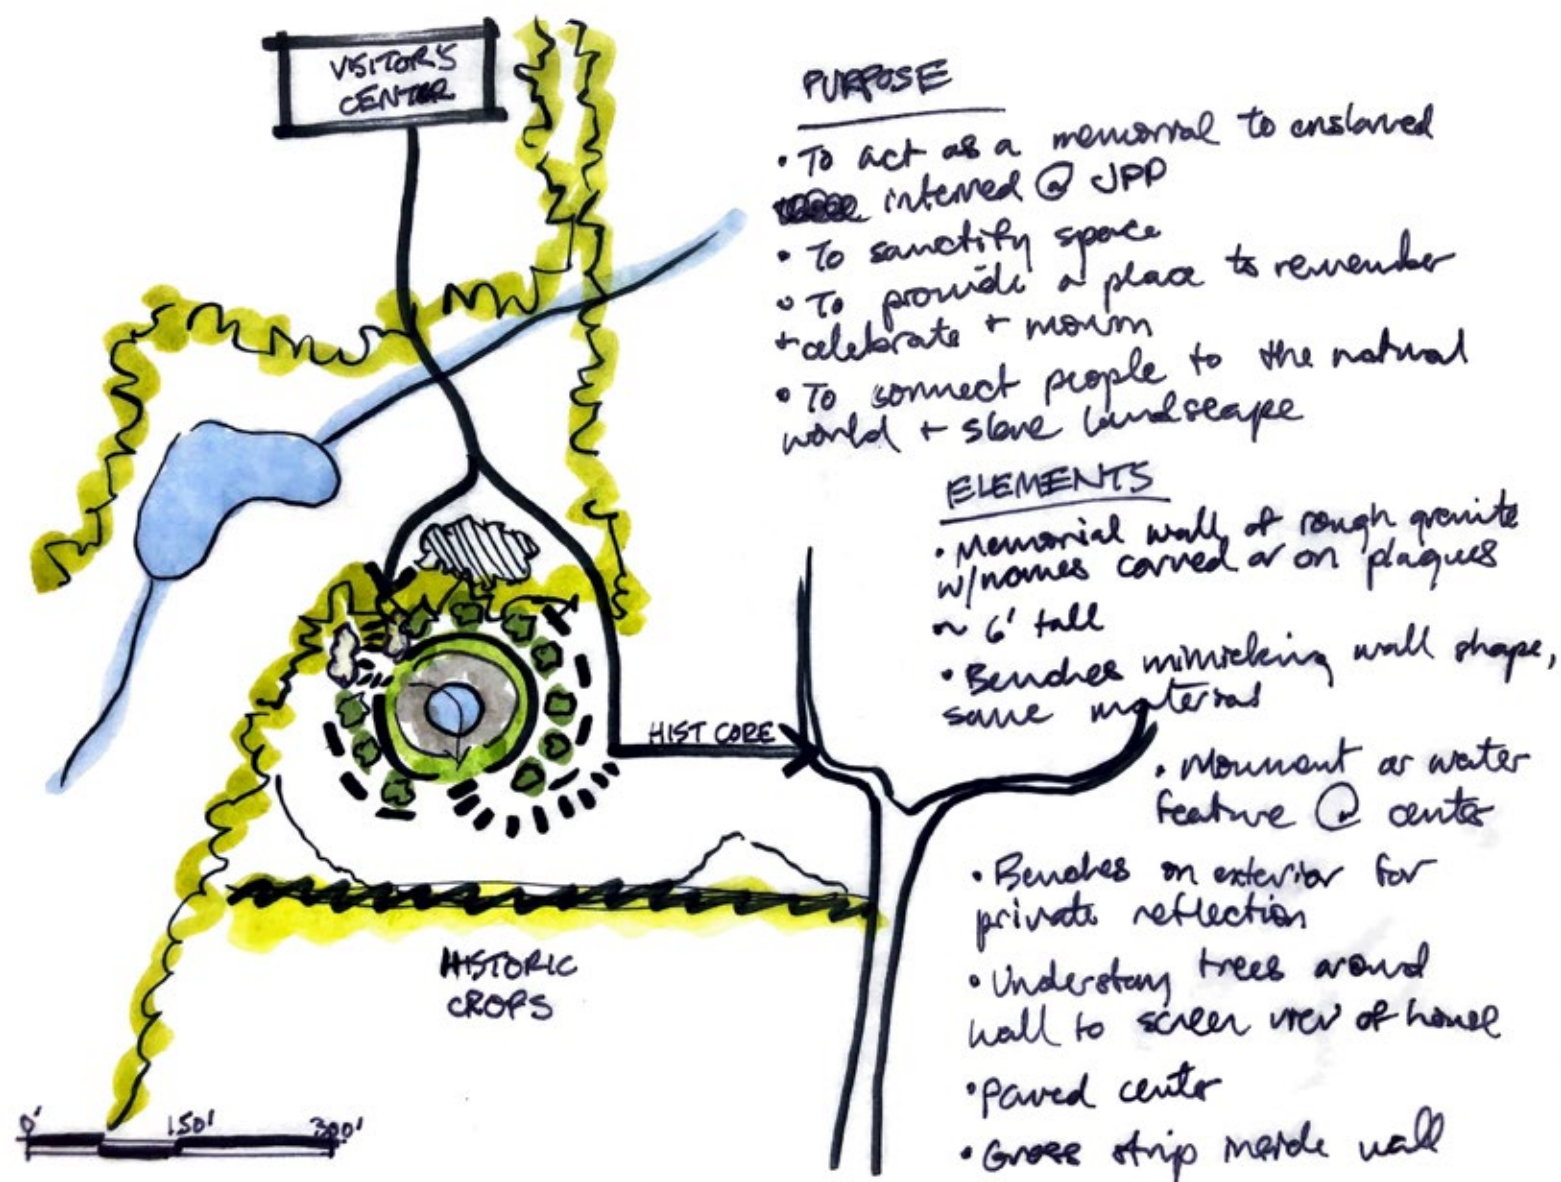 VISITOR'S
CENTER
PURPOSE
• To act as a memorial to enslaved
interred @ JPP
• To sanctify space
• To provide a place to remember
+ celebrate + mourn
• To connect people to the natural
world + slave landscape
ELEMENTS
• Memorial wall of rough granite
w/names carved or on plaques
~ 6' tall
• Benches mimicking wall shape,
same material
HIST CORE
• Monument or water
feature @ center
• Benches on exterior for
private reflection
HISTORIC
CROPS
• Understory trees around
wall to screen view of house
• Paved center
• Grass strip inside wall
0' 150' 300'